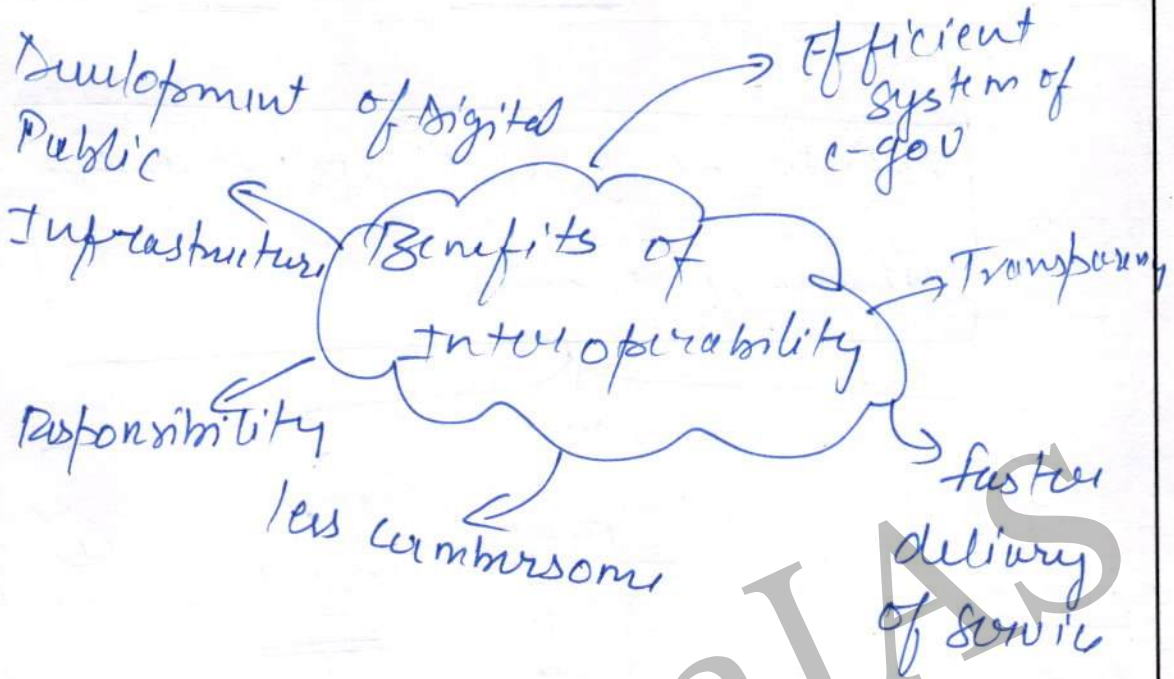 Development of Digital
Public
Infrastructure
Efficient
system of
e-gov
Benefits of
Interoperability
Transparency
Responsibility
less cumbersome
faster
delivery
of service
IAS